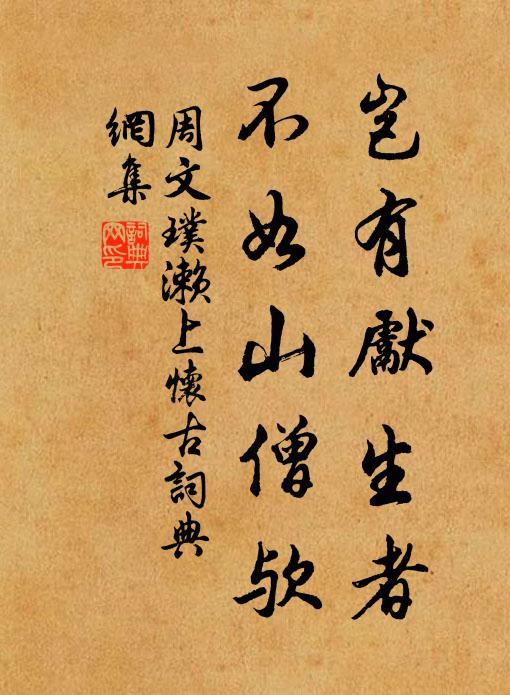 豈有獻生者
不如山僧欤
周文璞瀨上懷古詞典
網集
詞典
网印